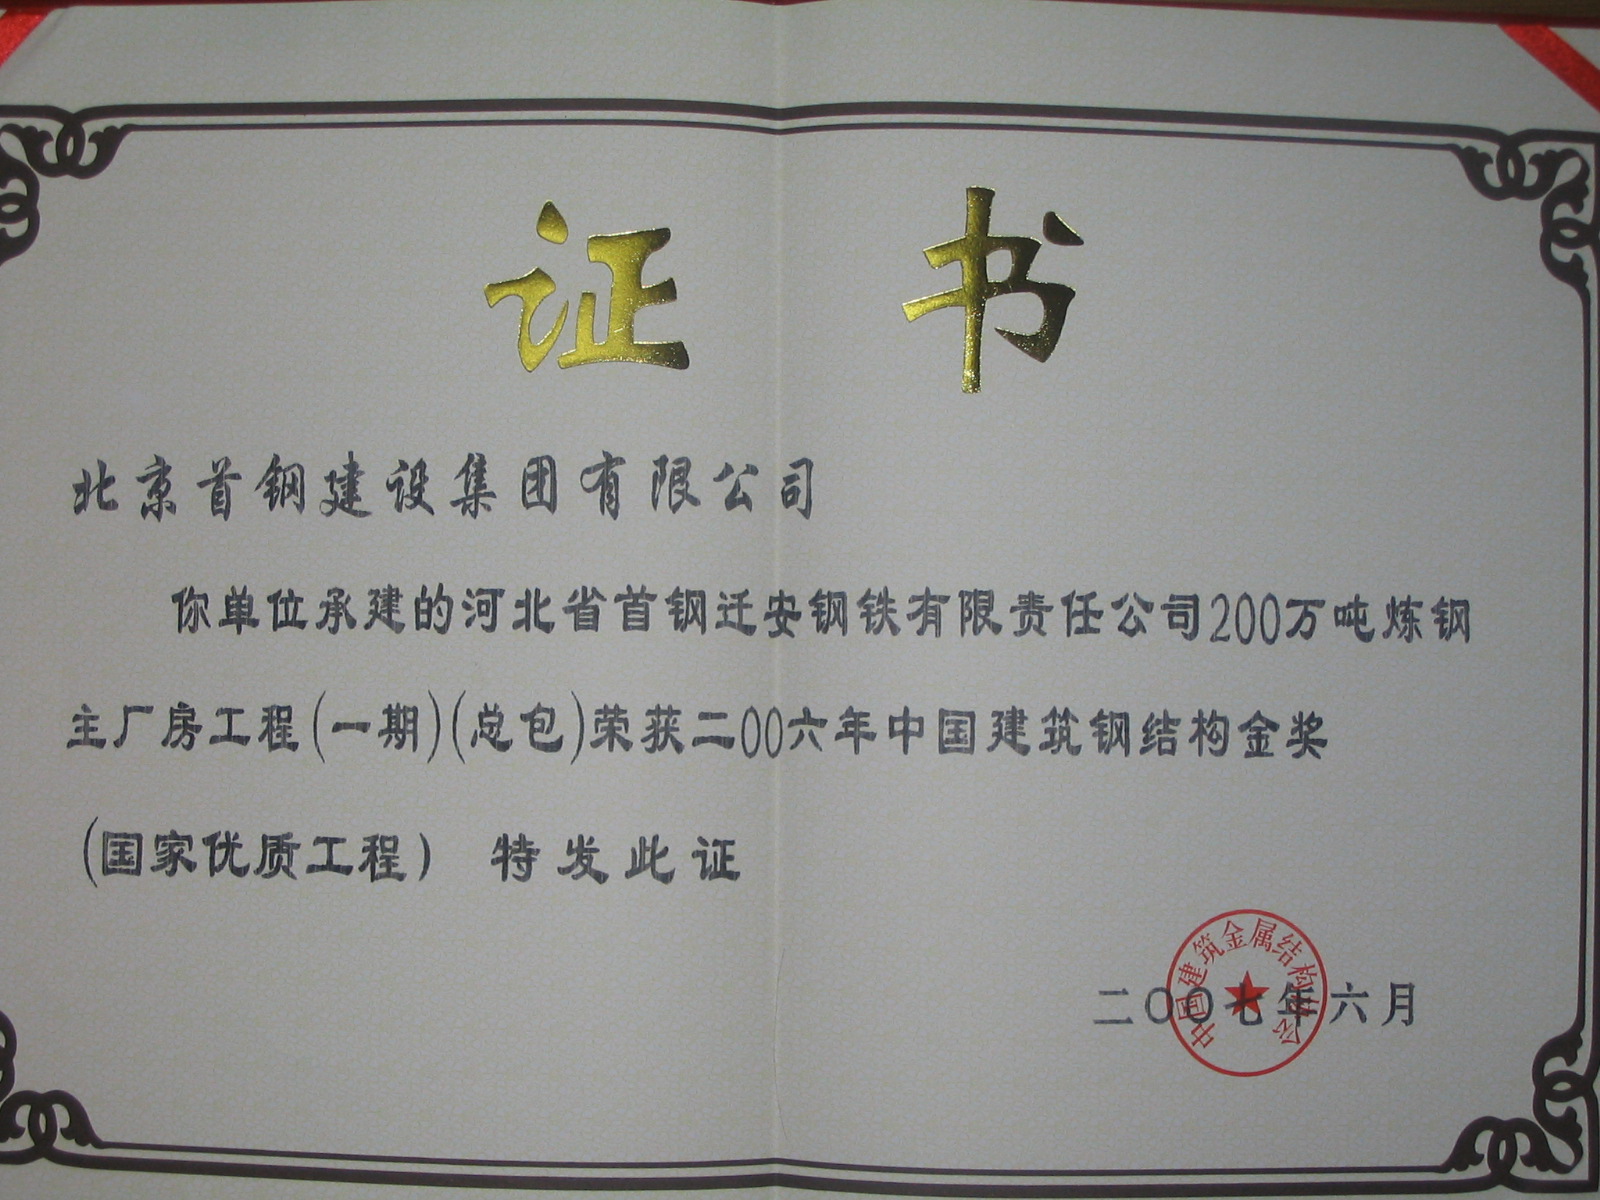 证书
北京首钢建设集团有限公司
你单位承建的河北省首钢迁安钢铁有限责任公司200万吨炼钢
主厂房工程(一期)(总包)荣获二00六年中国建筑钢结构金奖
(国家优质工程) 特发此证
二〇〇七年六月
中国建筑金属结构协会